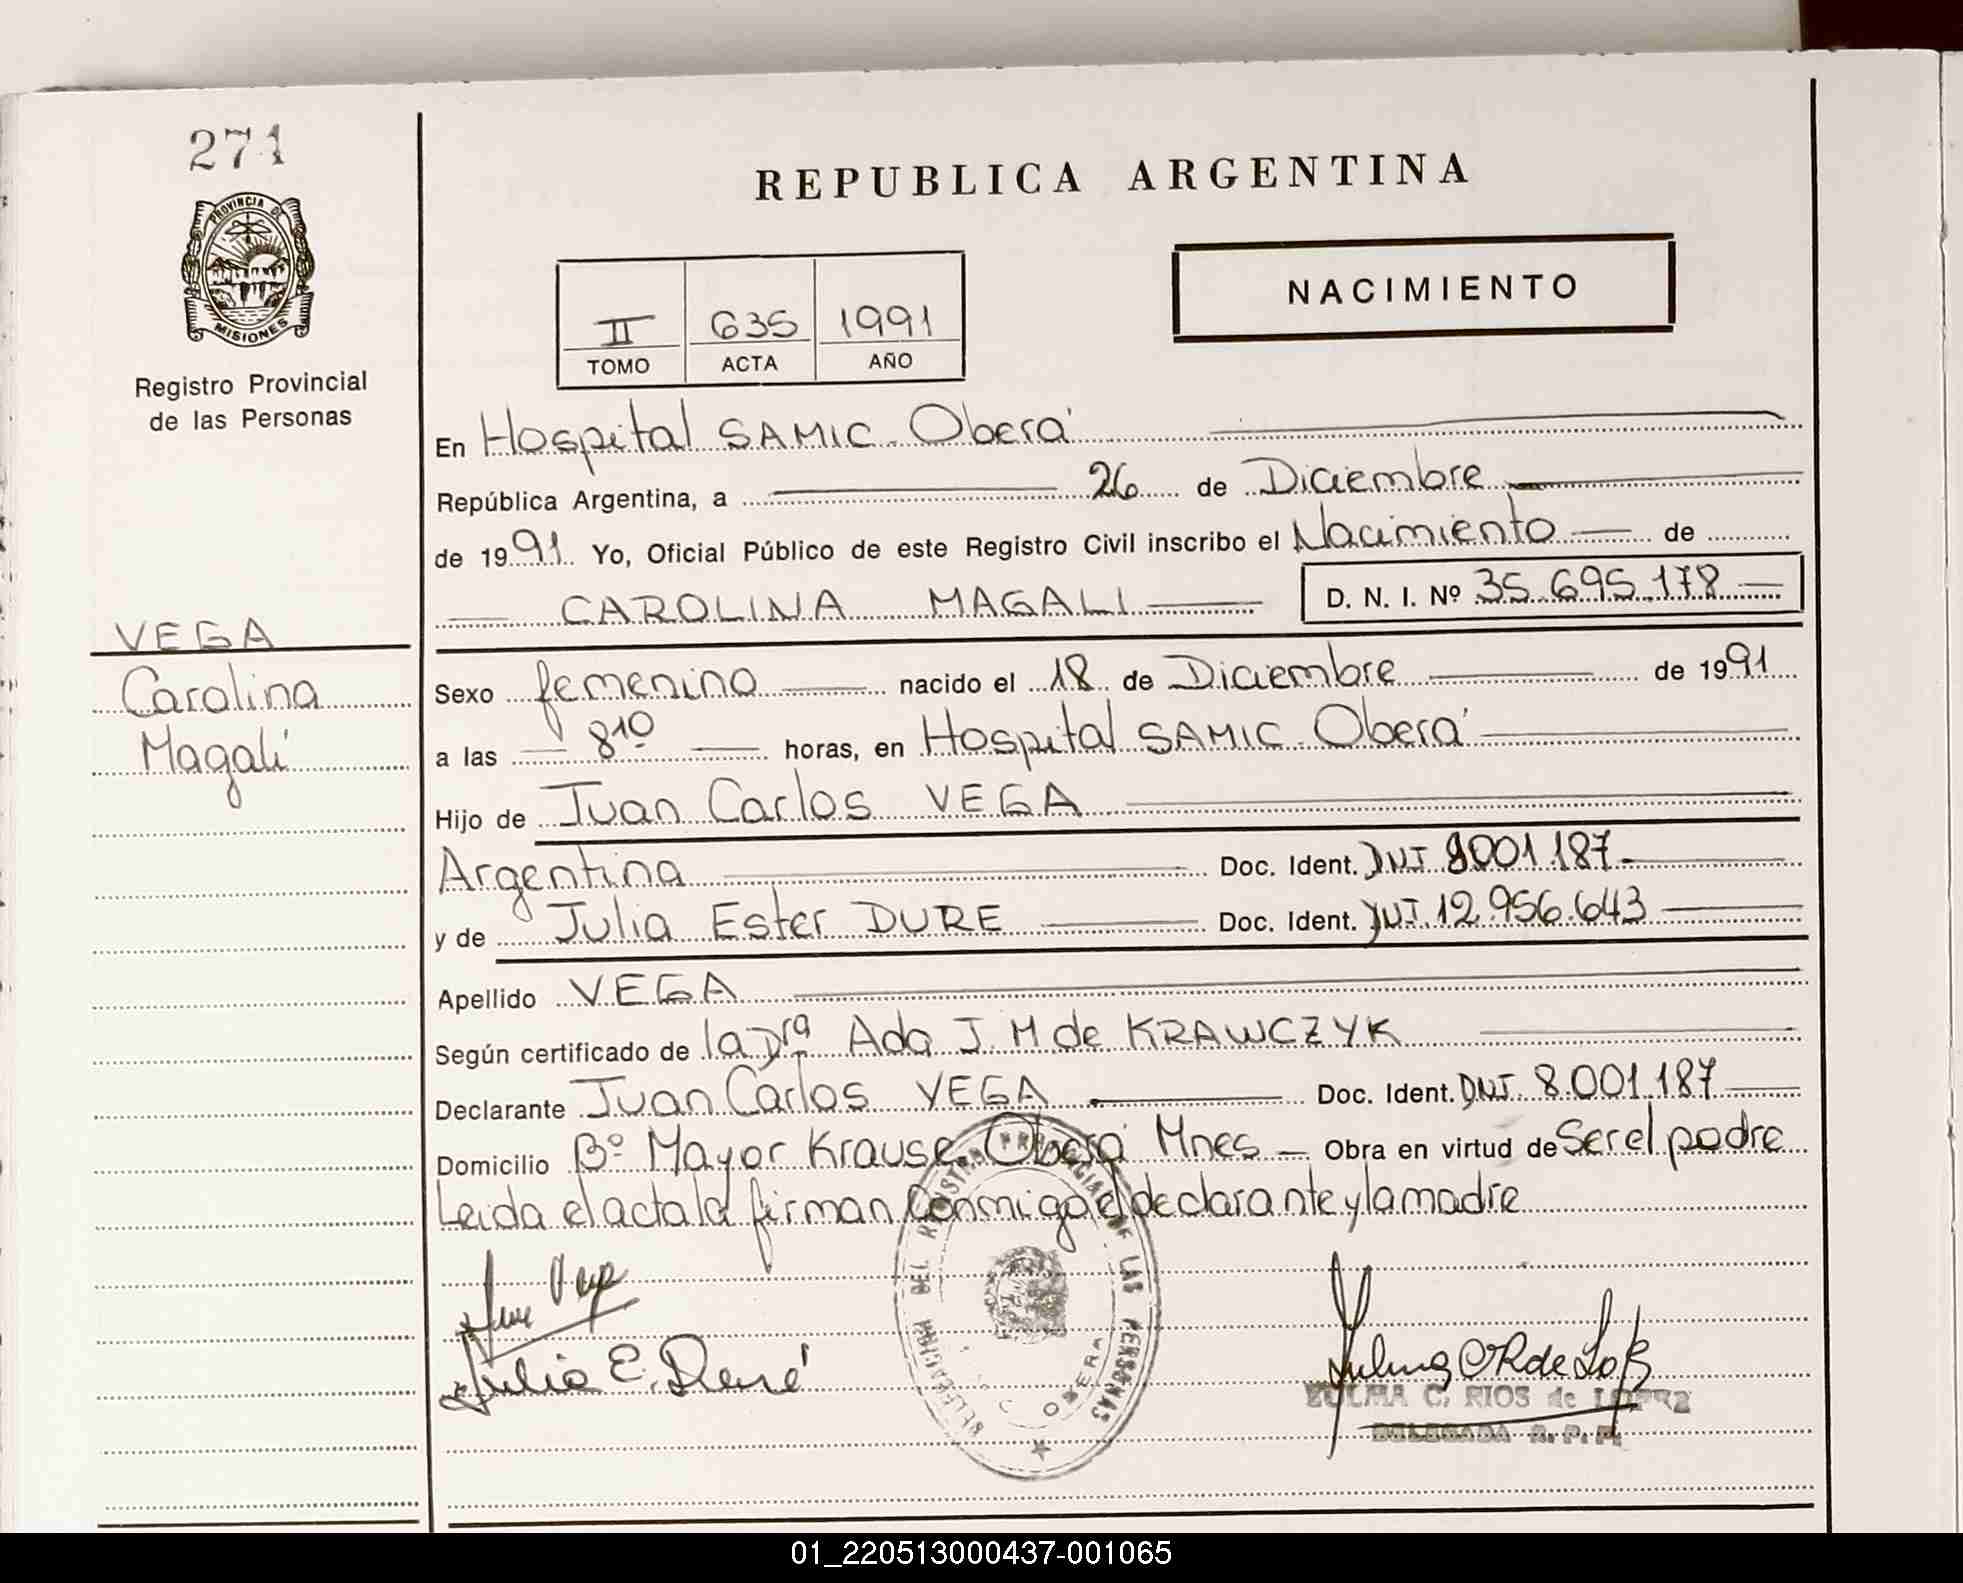 271
PROVINCIA DE
MISIONES
Registro Provincial
de las Personas
VEGA
Carolina
Magalí
REPUBLICA ARGENTINA
NACIMIENTO
II 635 1991
TOMO ACTA AÑO
En Hospital SAMIC. Oberá
República Argentina, a 26 de Diciembre
de 1991. Yo, Oficial Público de este Registro Civil inscribo el Nacimiento de
CAROLINA MAGALI D. N. I. Nº 35.695.178
Sexo femenino nacido el 18 de Diciembre de 1991
a las 8¹⁰ horas, en Hospital SAMIC. Oberá
Hijo de Juan Carlos VEGA
Argentina Doc. Ident. DNI 8001.187
y de Julia Ester DURE Doc. Ident. DNI. 12.956.643
Apellido VEGA
Según certificado de la Drª Ada J. M de KRAWCZYK
Declarante Juan Carlos VEGA Doc. Ident. DNI. 8.001.187
Domicilio Bº Mayor Krause. Oberá Mnes Obra en virtud de Ser el padre
Leida el acta la firman conmigo el declarante y la madre
Julia E. Duré
DELEGACION DEL REGISTRO PROVINCIAL DE LAS PERSONAS
OBERA
ZULMA C. RIOS de LOPEZ
DELEGADA R. P. P.
01_220513000437-001065